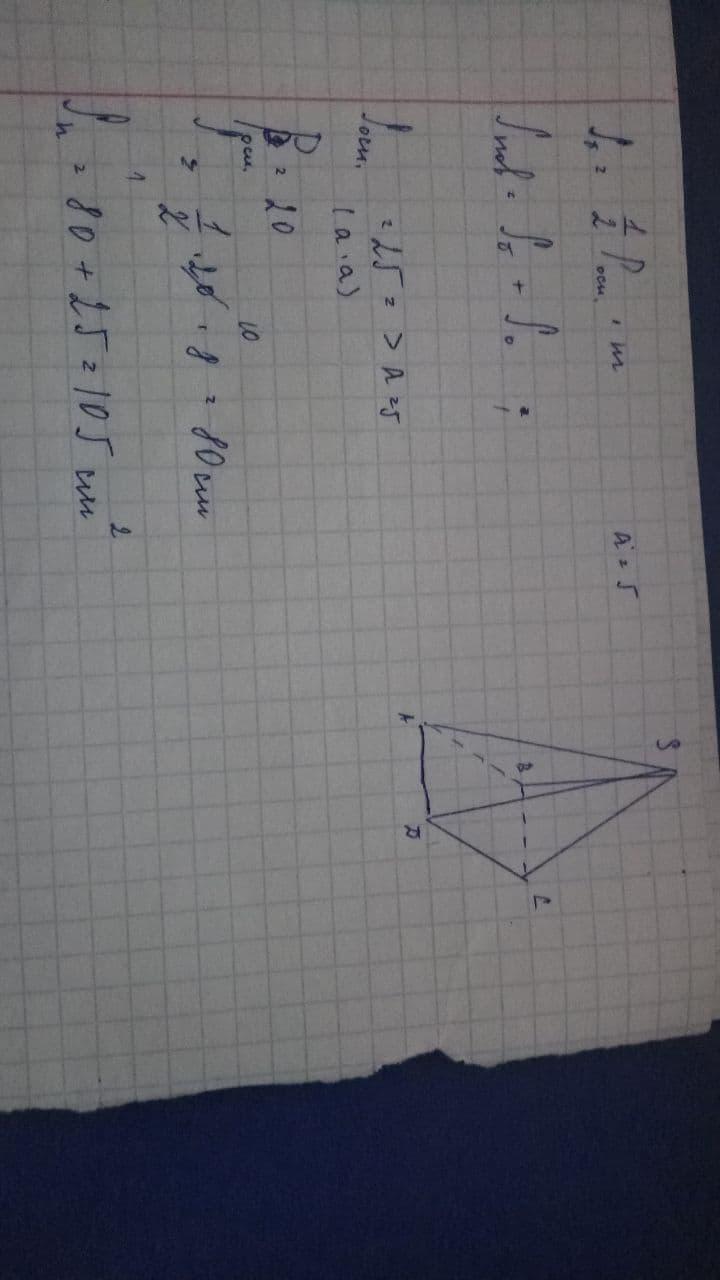 Sб = 1/2 Pосн. · m
a = 5
Sпов = Sб + Sо ;
Sосн. = 25 => a = 5
(a · a)
Pосн. = 20
S = 1/2 · 20 · 8 = 80 см
1 10
Sп = 80 + 25 = 105 см²
S
A
B
C
D